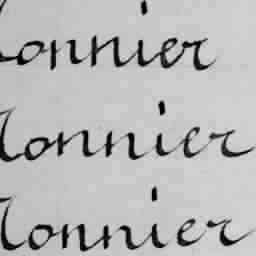 onnier
onnier
onnier